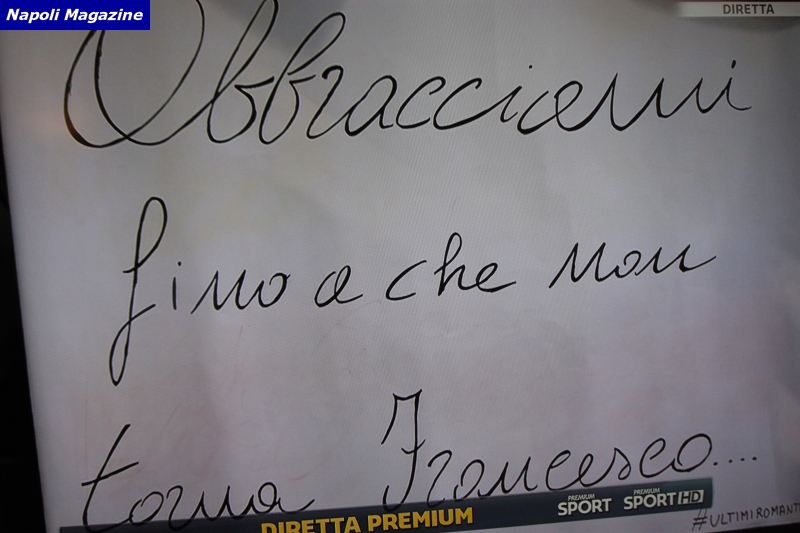 Napoli Magazine
DIRETTA
Abbracciami
fino a che non
torna Francesco....
DIRETTA PREMIUM
PREMIUM SPORT
PREMIUM SPORT HD
#ULTIMIROMANTI